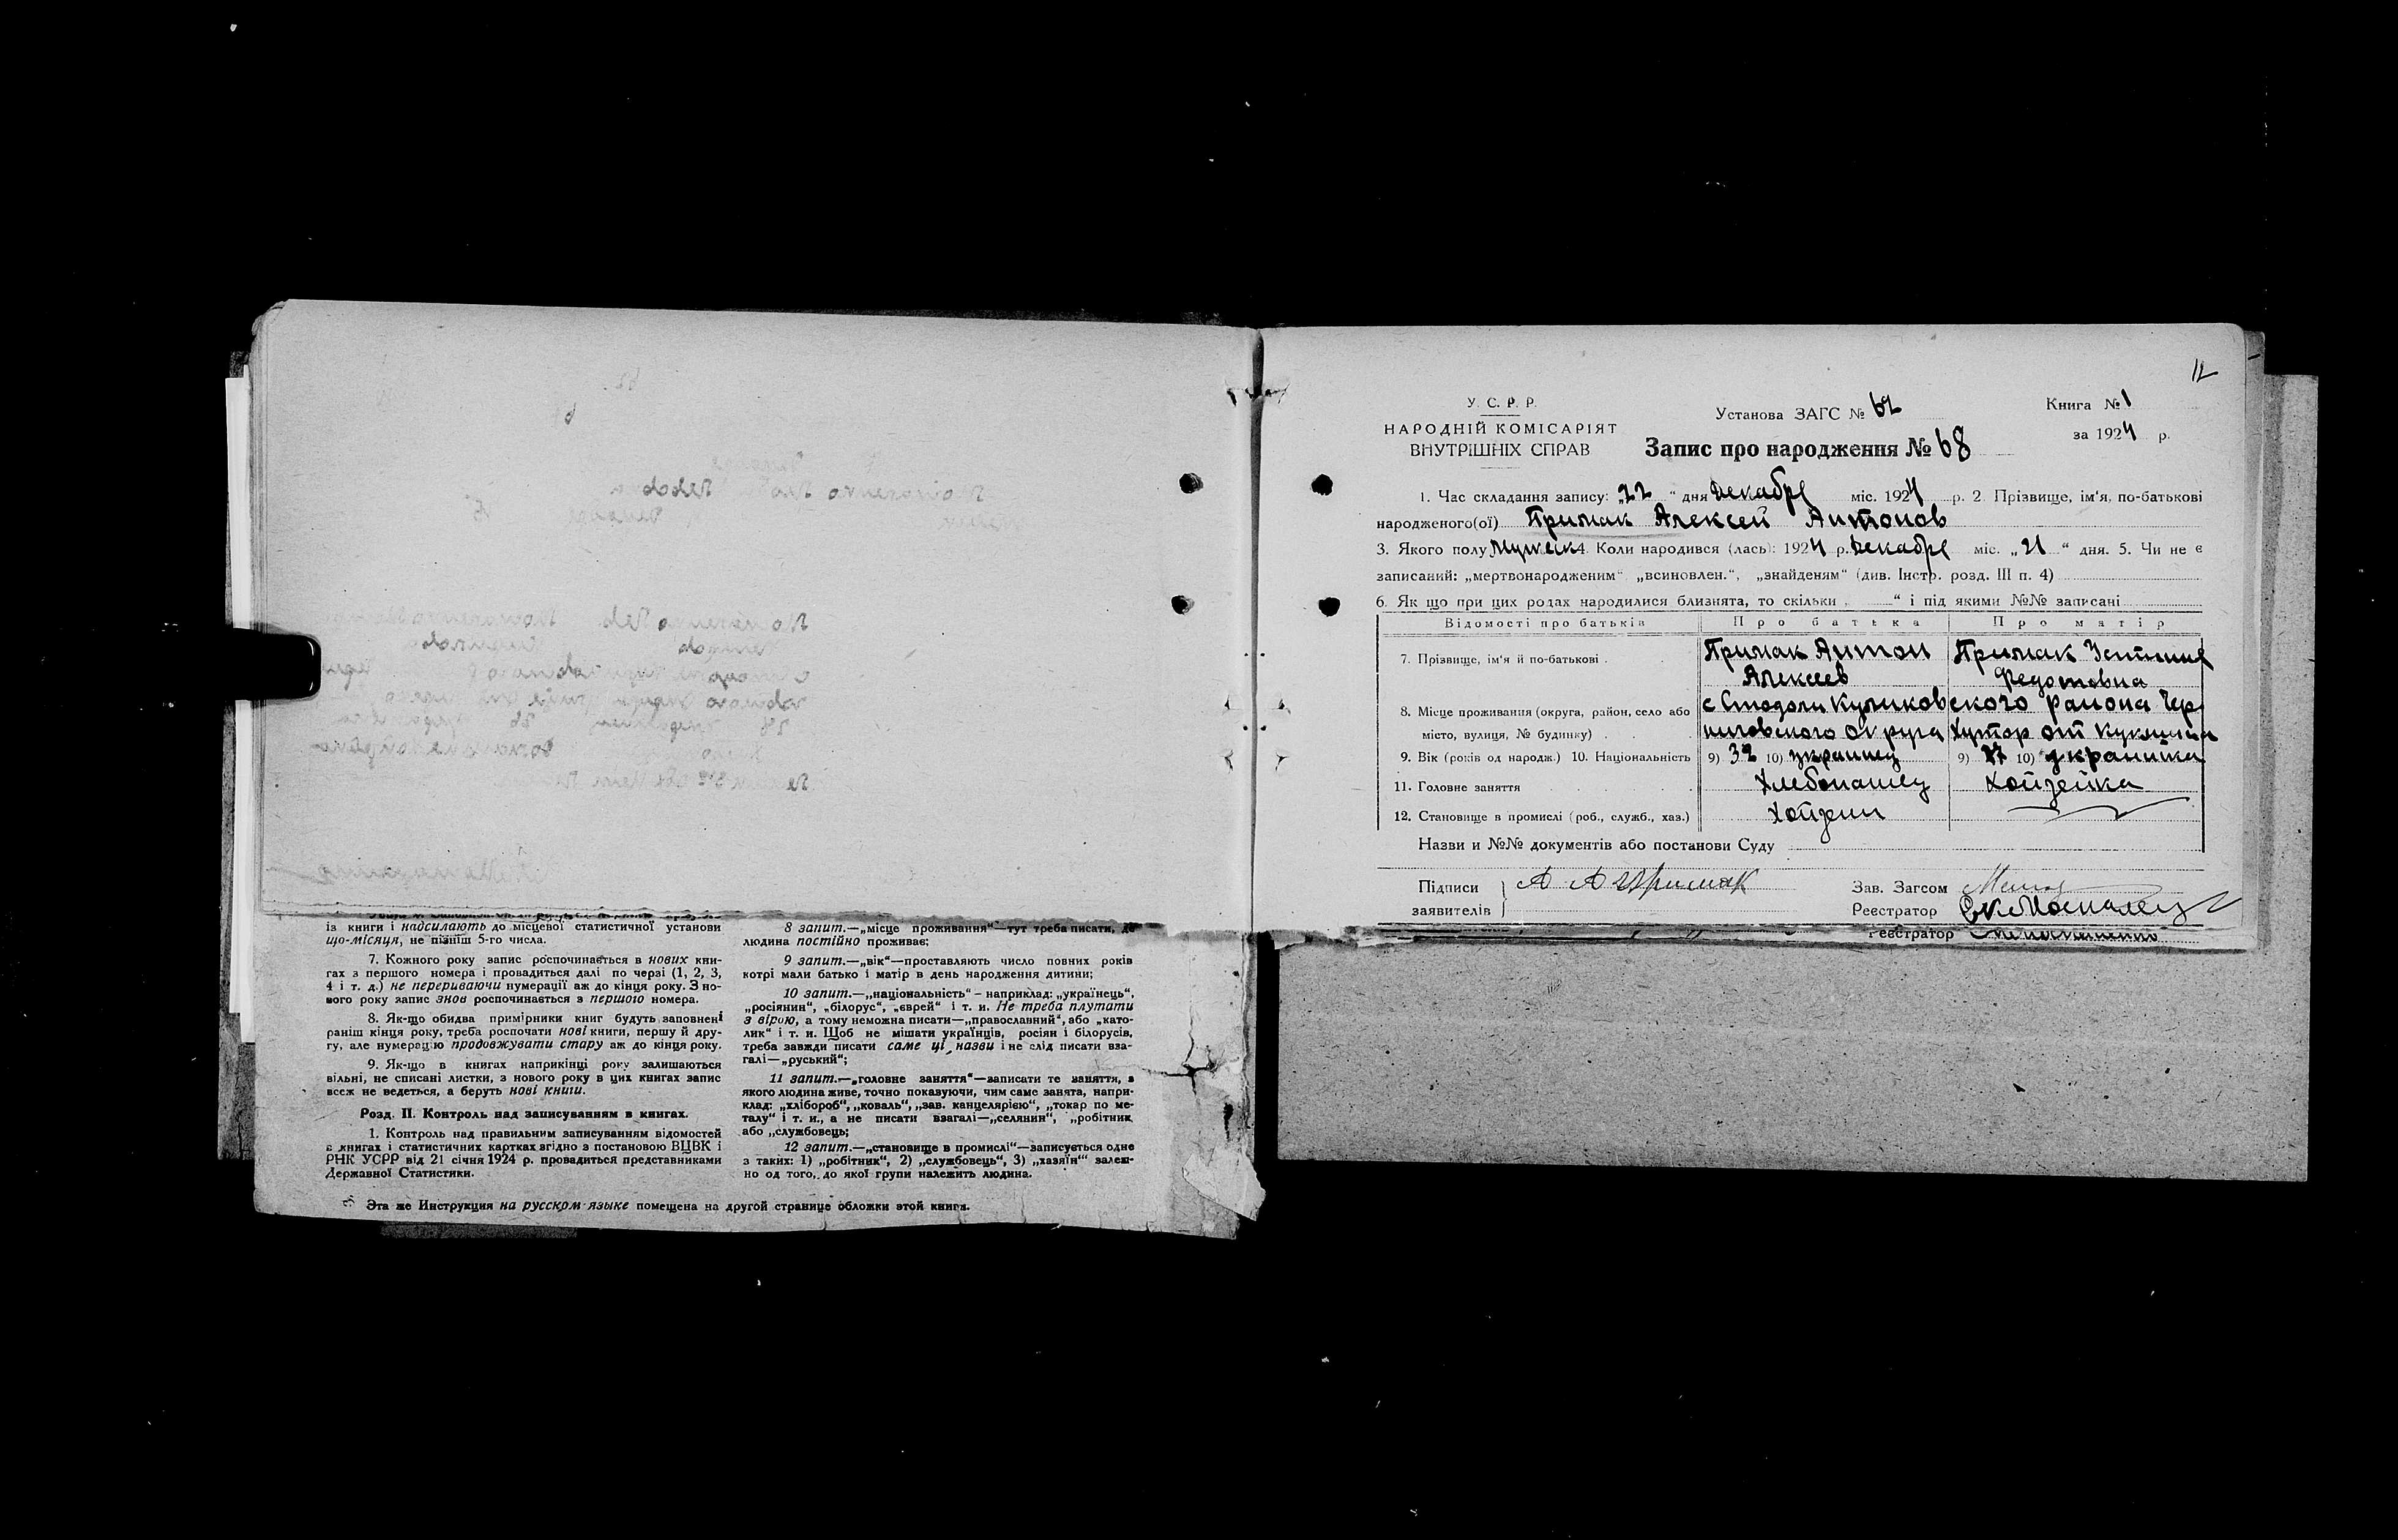 із книги і надсилають до місцевої статистичної установи
що-місяця, не пізніш 5-го числа.
7. Кожного року запис роспочинається в нових кни-
гах з першого номера і провадиться далі по черзі (1, 2, 3,
4 і т. д.) не перериваючи нумерації аж до кінця року. З но-
вого року запис знов роспочинається з першого номера.
8. Як-що обидва примірники книг будуть заповнені
раніш кінця року, треба роспочати нові книги, першу й дру-
гу, але нумерацію продовжувати стару аж до кінця року.
9. Як-що в книгах наприкінці року залишаються
вільні, не списані листки, з нового року в цих книгах запис
всеж не ведеться, а беруть нові книги.
Розд. II. Контроль над записуванням в книгах.
1. Контроль над правильним записуванням відомостей
в книгах і статистичних картках згідно з постановою ВЦВК і
РНК УСРР від 21 січня 1924 р. провадиться представниками
Державної Статистики.
8 запит.—„місце проживання“—тут треба писати, де
людина постійно проживає;
9 запит.—„вік“—проставляють число повних років
котрі мали батько і матір в день народження дитини;
10 запит.—„національність“ – наприклад: „українець“,
„росіянин“, „білорус“, „єврей“ і т. и. Не треба плутати
з вірою, а тому неможна писати—„православний“, або „като-
лик“ і т. и. Щоб не мішати українців, росіян і білорусів,
треба завжди писати саме ці назви і не слід писати вза-
галі—„руський“;
11 запит.—„головне заняття“—записати те заняття, з
якого людина живе, точно показуючи, чим саме занята, напри-
клад: „хлібороб“, „коваль“, „зав. канцелярією“, „токар по ме-
талу“ і т. и., а не писати взагалі—„селянин“, „робітник
або „службовець;
12 запит.—„становище в промислі“—записується одне
з таких: 1) „робітник“, 2) „службовець“, 3) „хазяїн“ залеж-
но од того, до якої групи належить людина.
Эта же Инструкция на русском языке помещена на другой странице обложки этой книги.
12
У. С. Р. Р.
НАРОДНІЙ КОМІСАРІЯТ
ВНУТРІШНІХ СПРАВ
Установа ЗАГС № 62
Запис про народження № 68
Книга № 1
за 1924 р.
1. Час складання запису: „22“ дня Декабря міс. 1924 р. 2. Прізвище, ім‘я, по-батькові
народженого(ої) Примак Алексей Антонов
3. Якого полу Мужеск 4. Коли народився (лась): 1924 р. Декабря міс. „21“ дня. 5. Чи не є
записаний: „мертвонародженим“ „всиновлен.“, „знайденям“ (див. Інстр. розд. III п. 4)
6. Як що при цих родах народилися близнята, то скільки „ “ і під якими №№ записані
Відомості про батьків Про батька Про матір
7. Прізвище, ім‘я й по-батькові Примак Антон Примак Устиния
Алексеев Федотовна
8. Місце проживання (округа, район, село або с Стодоли Куликовского района Чер
місто, вулиця, № будинку) ниговского Округа Хутор от
9. Вік (років од народж.) 10. Національність 9) 32 10) украинец 9) 10) украинка
11. Головне заняття Хлебопашец Хозяйка
12. Становище в промислі (роб., служб., хаз.) Хозяин
Назви и №№ документів або постанови Суду
Підписи А А Примак Зав. Загсом
заявителів Реєстратор
Реєстратор